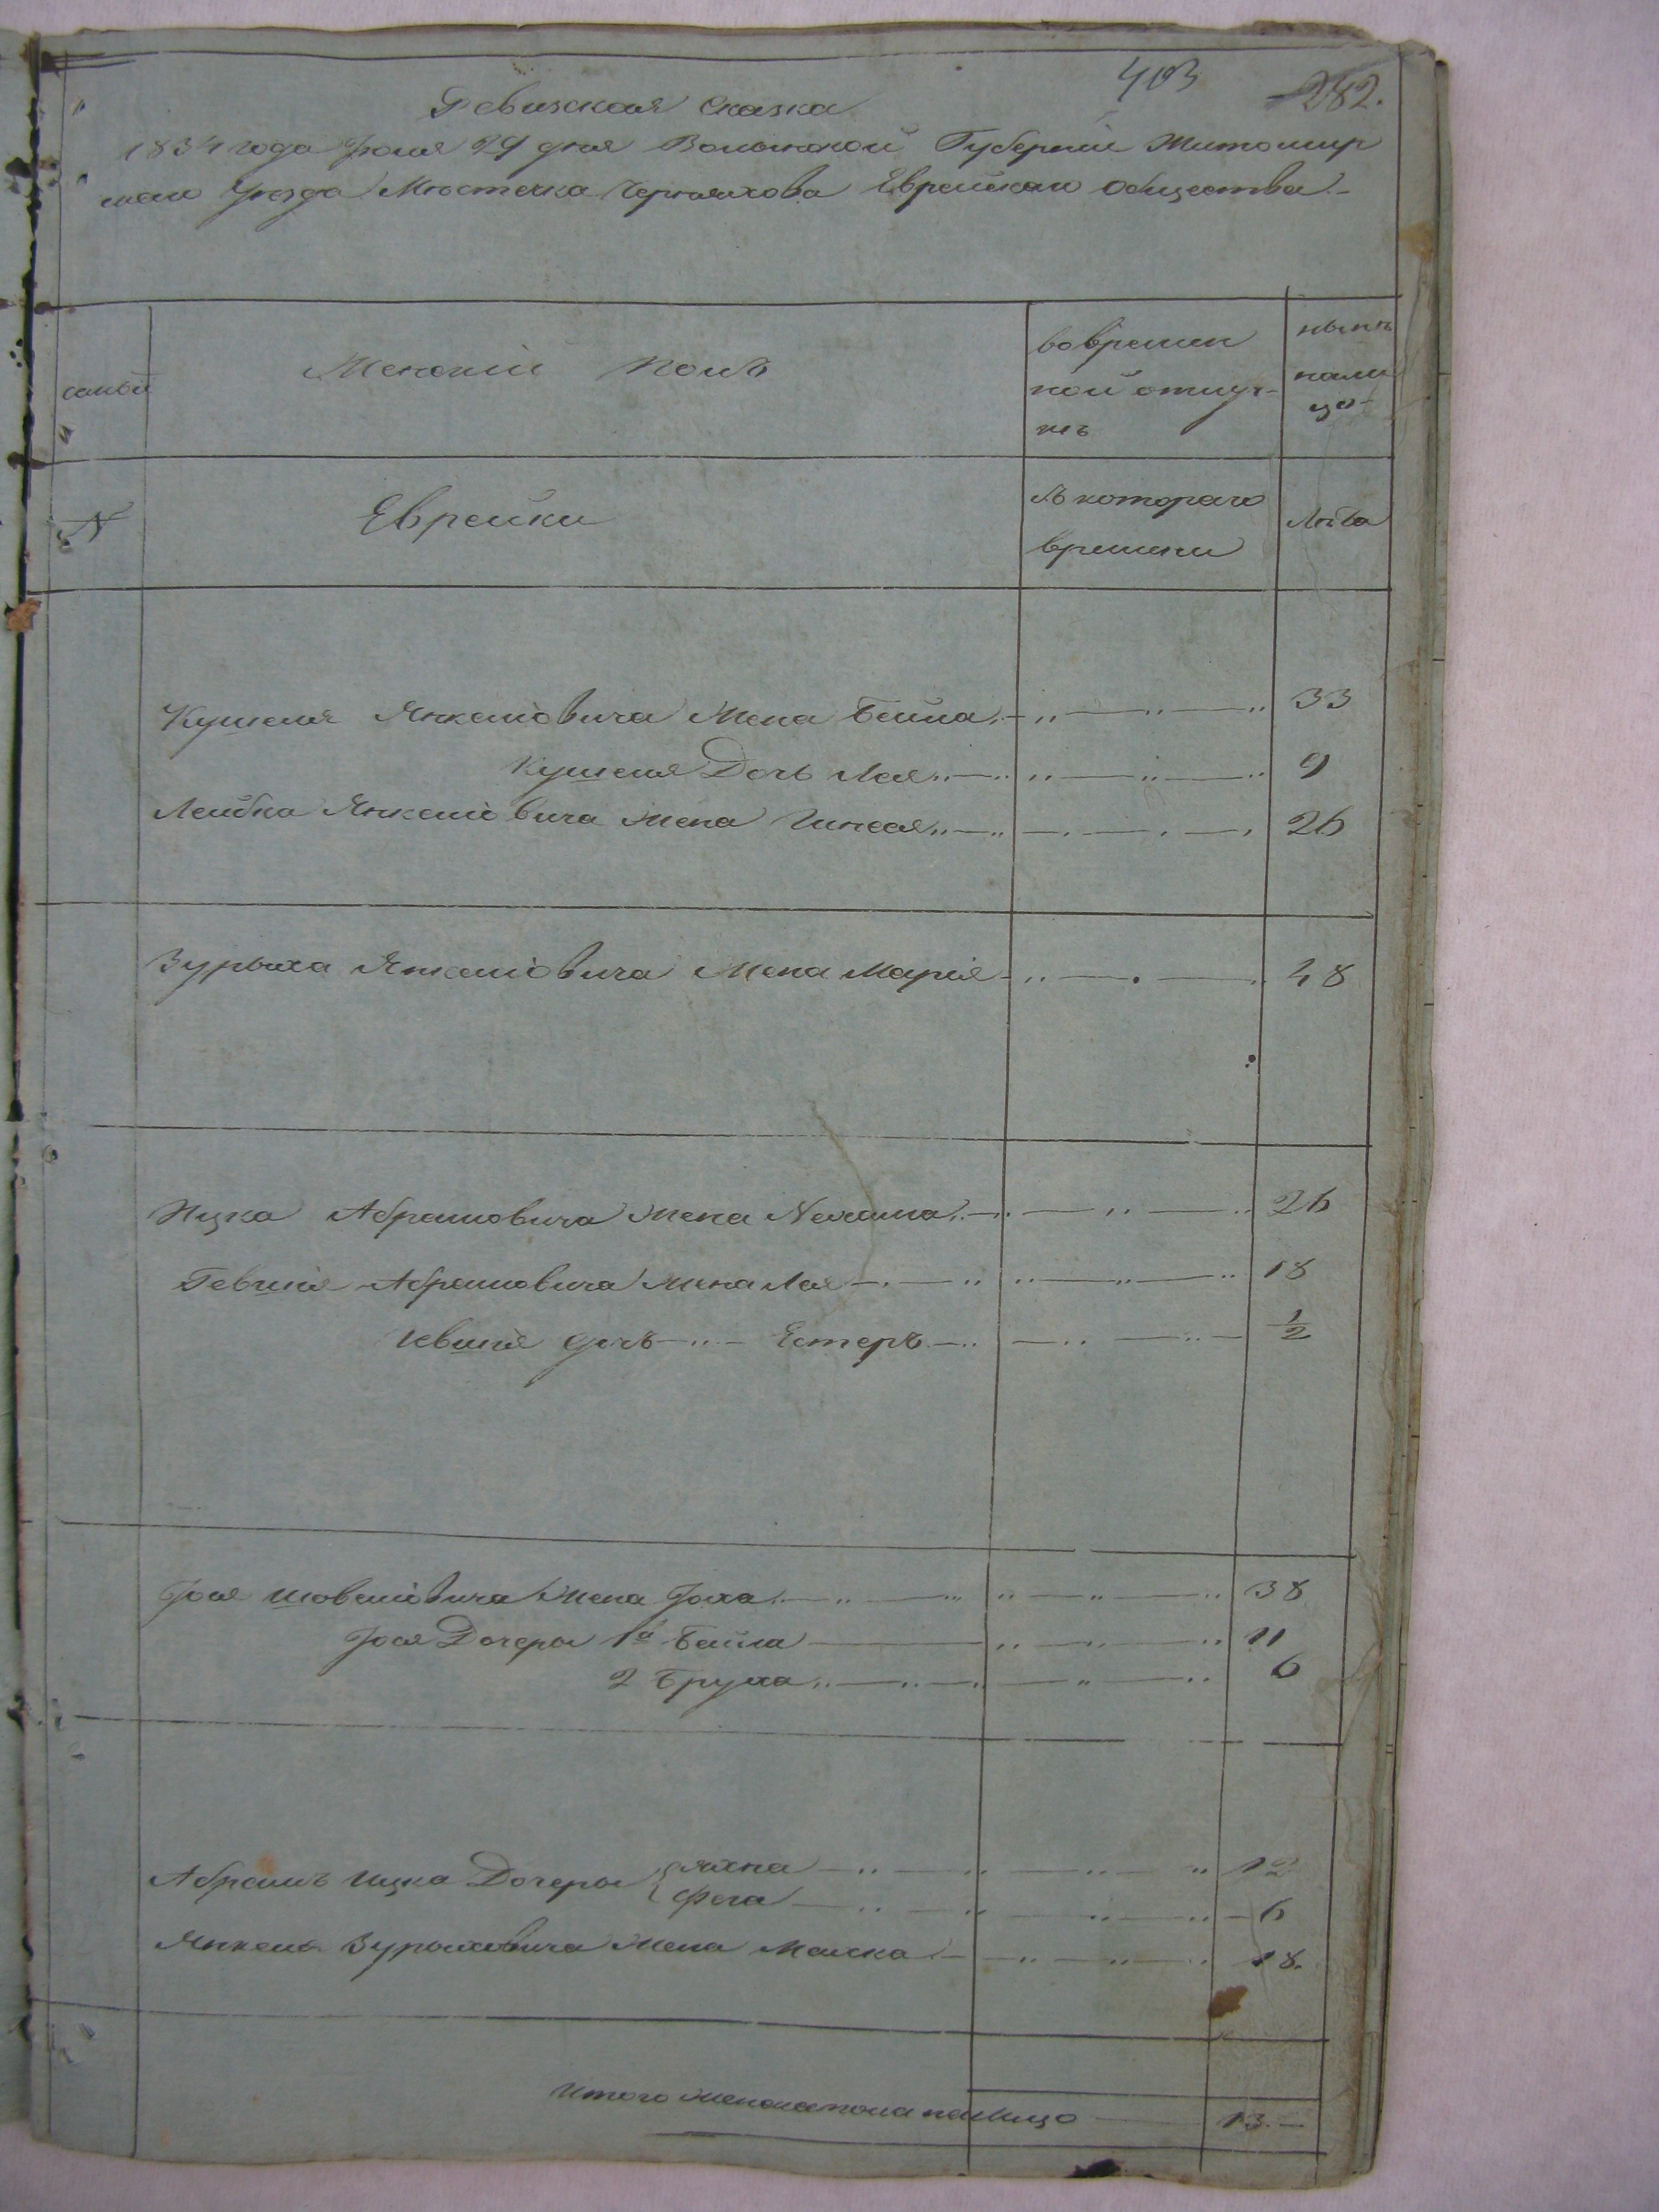 403 282.
Ревизская Сказка
1834 года Июля 29 дня Волынской Губерніи Житомир
скаго Уезда Местечка Черняхова Еврейскаго общества
семьи
Женскій полъ
во времен
ной отлуч-
кѣ
нынѣ
на ли
цо
№
Еврейки
Съ котораго
времени
Лѣта
Кушеля Янкеліовича Жена Бейла 33
Кушеля Дочь Лея 9
Лейбка Янкеліовича жена 26
Зурыха Янкеліовича Жена Марія 48
Ицка Абрамовича жена Нехама 26
Абрамовича жена Лея 18
дочь Естеръ 1/2
Іося Шовеліовича Жена 38
Іося Дочеры 1я Бейла 11
2 Бруха 6
Абрамъ Ицка Дочеры Яхна 12
Фега 6
Янкель Зурыховича Жена 18.
Итого женска пола на лицо 13.